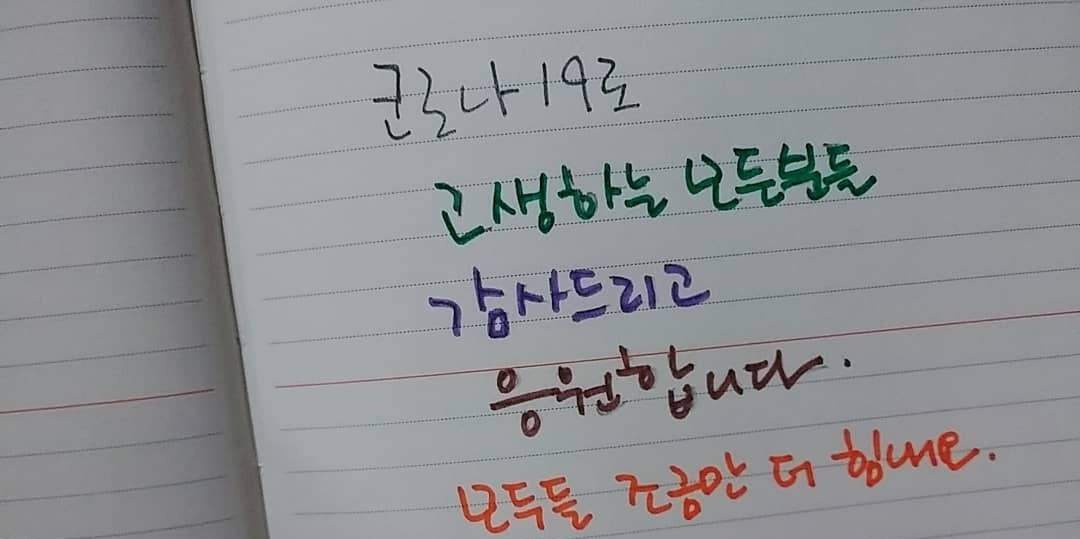 코로나19로
고생하는 모든분들
감사드리고
응원합니다.
모두들 조금만 더 힘내요.